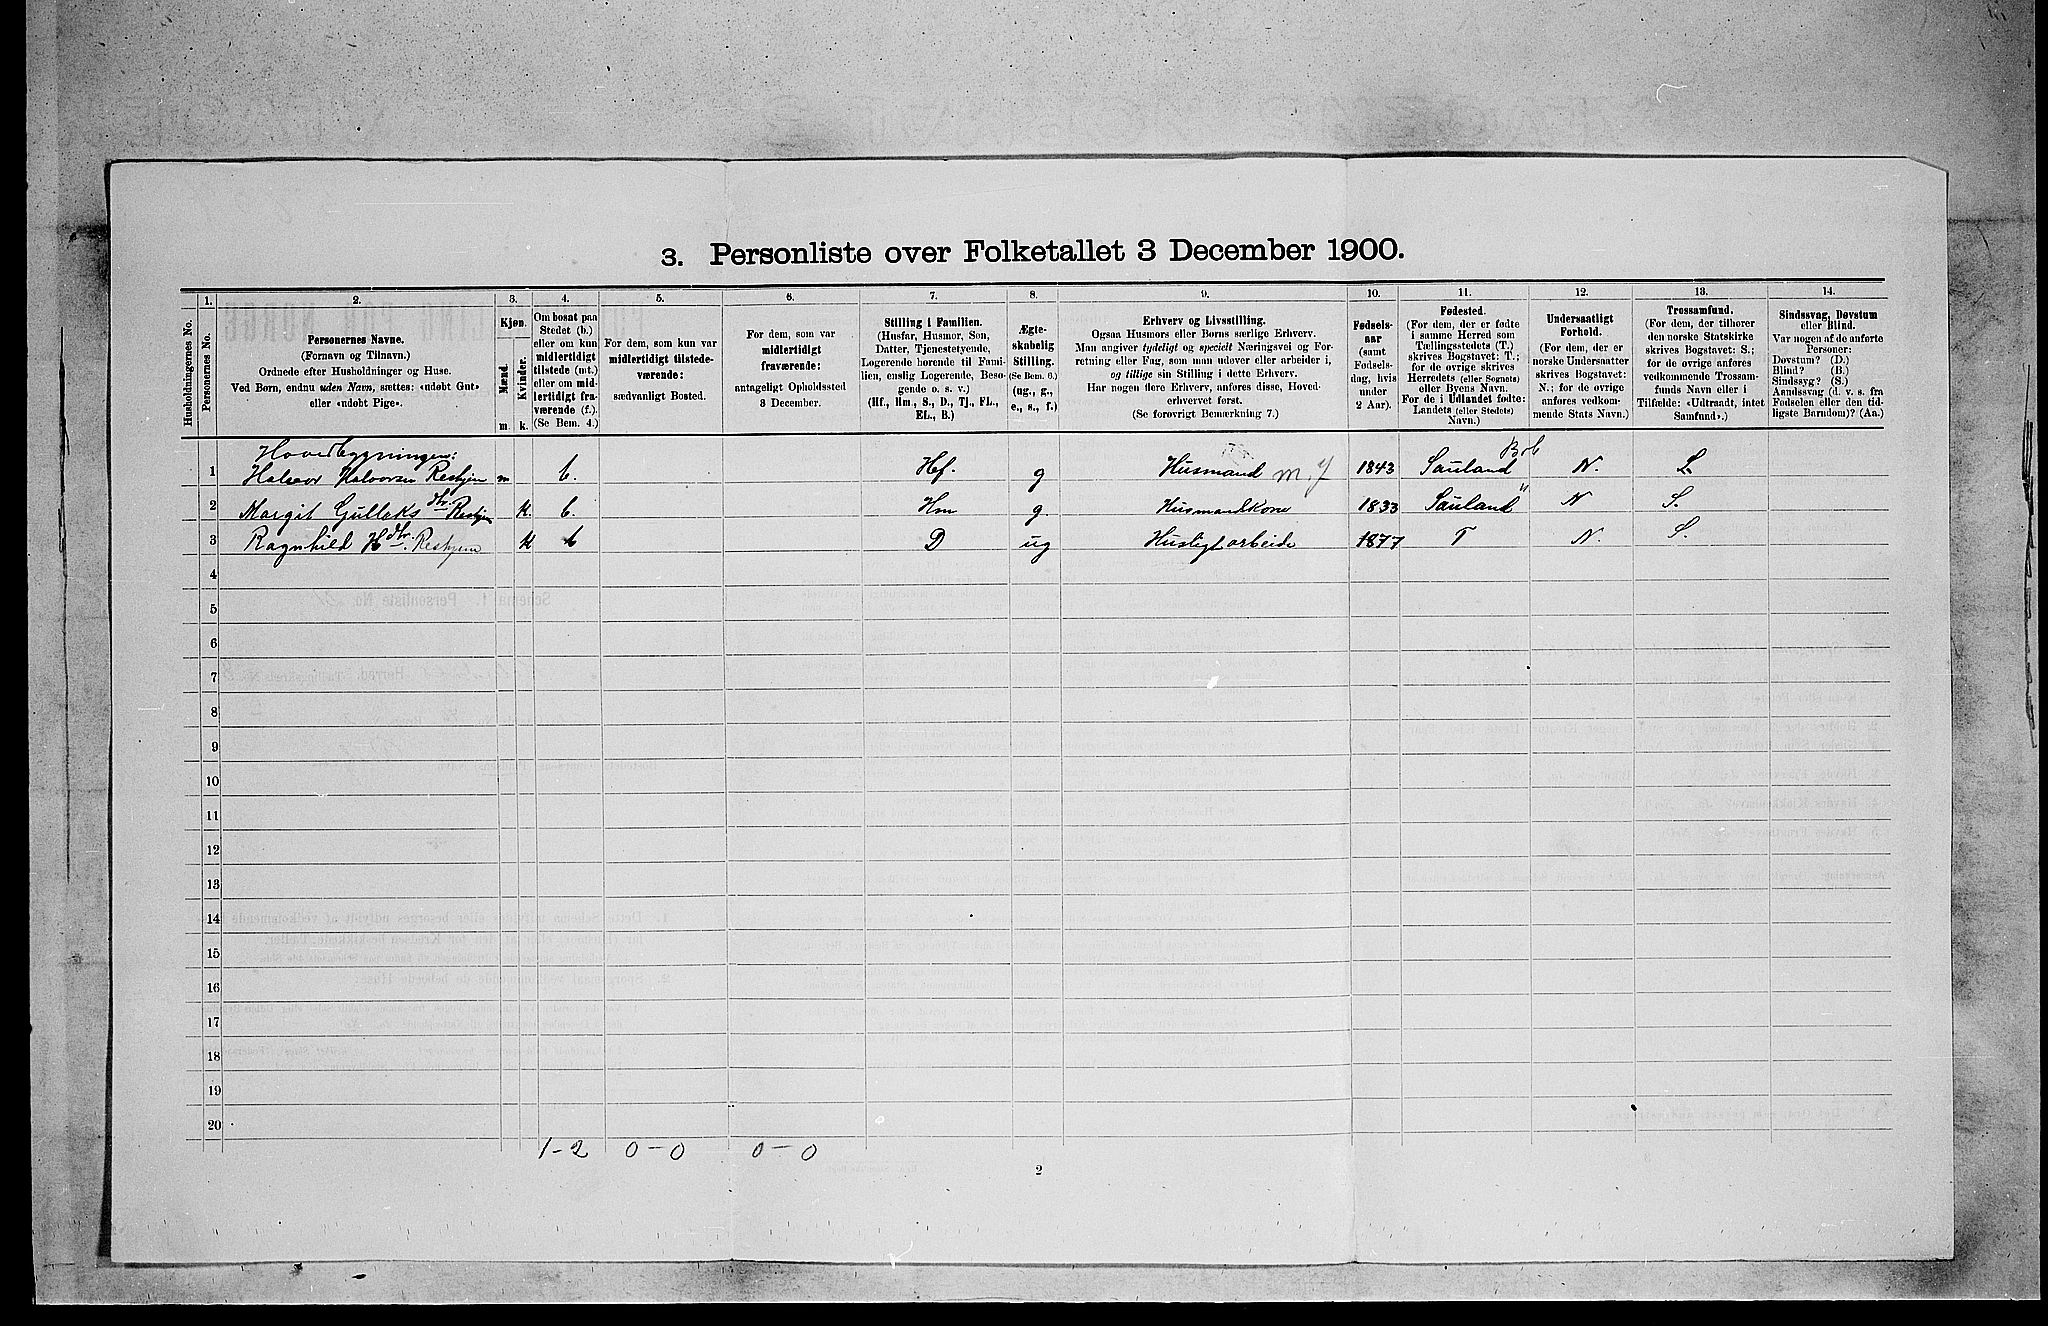 3. Personliste over Folketallet 3 December 1900.
1. 2. 3. 4. 5. 6. 7. 8. 9. 10. 11. 12. 13. 14.
Husholdningernes No.
Personernes No.
Personernes Navne.
(Fornavn og Tilnavn.)
Ordnede efter Husholdninger og Huse.
Ved Børn, endnu uden Navn, sættes: «udøbt Gut»
eller «udøbt Pige».
Kjøn.
Mænd.
Kvinder.
m. k.
Om bosat paa
Stedet (b.)
eller om kun
midlertidigt
tilstede (mt.)
eller om mid-
lertidigt fra-
værende (f.).
(Se Bem. 4.)
For dem, som kun var
midlertidigt tilstede-
værende:
sædvanligt Bosted.
For dem, som var
midlertidigt
fraværende:
antageligt Opholdssted
3 December.
Stilling i Familien.
(Husfar, Husmor, Søn,
Datter, Tjenestetyende,
Logerende hørende til Fami-
lien, enslig Logerende, Besø-
gende o. s. v.)
(Hf., Hm., S., D., Tj., FL.,
EL., B.)
Ægte-
skabelig
Stilling.
(Se Bem. 6.)
(ug., g.,
e., s., f.)
Erhverv og Livsstilling.
Ogsaa Husmors eller Børns særlige Erhverv.
Man angiver tydeligt og specielt Næringsvei og For-
retning eller Fag, som man udøver eller arbeider i,
og tillige sin Stilling i dette Erhverv.
Har nogen flere Erhverv, anføres disse, Hoved-
erhvervet først.
(Se forøvrigt Bemærkning 7.)
Fødsels-
aar
(samt
Fødsels-
dag, hvis
under
2 Aar).
Fødested.
(For dem, der er fødte
i samme Herred som
Tællingsstedets (T.)
skrives Bogstavet: T.;
for de øvrige skrives
Herredets (eller Sognets)
eller Byens Navn.
For de i Udlandet fødte:
Landets (eller Stedets)
Navn.)
Undersaatligt
Forhold.
(For dem, der er
norske Undersaatter
skrives Bogstavet:
N.; for de øvrige
anføres vedkom-
mende Stats Navn.)
Trossamfund.
(For dem, der tilhører
den norske Statskirke
skrives Bogstavet: S.;
for de øvrige anføres
vedkommende Trossam-
funds Navn eller i
Tilfælde: «Udtraadt, intet
Samfund».)
Sindssvag, Døvstum
eller Blind.
Var nogen af de anførte
Personer:
Døvstum? (D.)
Blind? (B.)
Sindssyg? (S.)
Aandssvag (d. v. s. fra
Fødselen eller den tid-
ligste Barndom)? (Aa.)
Hovedbygningen:
1 Halvor Halvorsen Reshjem m b. Hf. g Husmand m. J 1843 Sauland N. S.
2 Margit Gulleksdtr. Reshjem k b. Hm g. Husmandkone 1833 Sauland " N S.
3 Ragnhild Hdtr. Reshjem k b D ug Husligt arbeide 1877 T N. S.
4
5
6
7
8
9
10
11
12
13
14
15
16
17
18
19
20
1-2 0-0 0-0
2